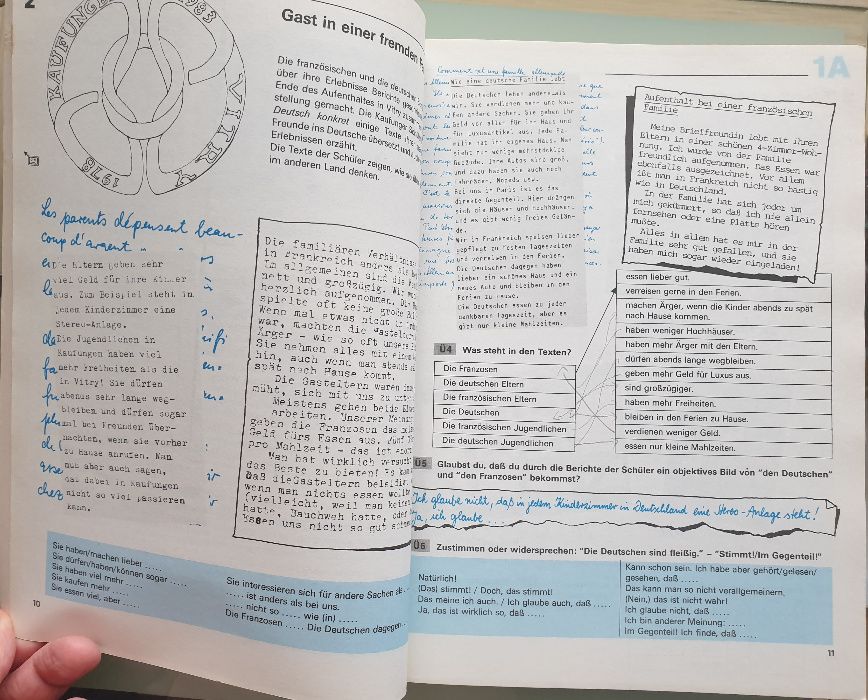 2
KAUFUNGEN
1983
VITRY
1978
Gast in einer fremden
Die französischen und die deutschen
über ihre Erlebnisse Berichte
Ende des Aufenthaltes in Vitry
stellung gemacht. Die Kaufunger
Deutsch konkret einige Texte
Freunde ins Deutsche übersetzt
Erlebnissen erzählt.
Die Texte der Schüler zeigen, wie
im anderen Land denken.
Les parents dépensent beau-
coup d'argent
Die Eltern geben sehr
viel Geld für ihre Kinder
aus. Zum Beispiel steht in
jedem Kinderzimmer eine
Stereo-Anlage.
Die Jugendlichen in
Kaufungen haben viel
mehr Freiheiten als die
in Vitry! Sie dürfen
abends sehr lange weg-
bleiben und dürfen sogar
mal bei Freunden über-
nachten, wenn sie vorher
zu Hause anrufen. Man
muß aber auch sagen,
daß dabei in Kaufungen
nicht so viel passieren
kann.
Die familiären Verhältnisse
in Frankreich anders als
Im allgemeinen sind die
nett und großzügig. Wir
herzlich aufgenommen. Die
spielte oft keine große
Wenn mal etwas nicht in
war, machten die Gasteltern
Ärger - wie so oft unsere
Sie nahmen alles mit einem
hin, auch wenn man abends
spät nach Hause kommt.
Die Gasteltern waren
müht, sich mit uns zu
Meistens gehen beide
arbeiten. Unserer Meinung
geben die Franzosen das
Geld fürs Essen aus. Fünf
pro Mahlzeit - das ist
Man hat wirklich versucht
das Beste zu bieten! Es
daß die Gasteltern
wenn man nichts essen wollte
(vielleicht, weil man keinen
hatte, Bauchweh hatte, oder
Essen uns nicht so gut
Sie haben/machen lieber .....
Sie dürfen/haben/können sogar .....
Sie haben viel mehr .....
Sie kaufen mehr .....
Sie essen viel, aber .....
Sie interessieren sich für andere Sachen als
..... ist anders als bei uns.
..... nicht so ..... wie (in) .....
Die Franzosen ..... Die Deutschen dagegen
10
1A
Wie eine deutsche Familie lebt
Die Deutschen leben anders als
wir. Sie verdienen mehr und kau-
fen andere Sachen. Sie geben ihr
Geld vor allem für ihr Haus und
für Luxusartikel aus. Jede Fa-
milie hat ihr eigenes Haus. Man
sieht nur wenige mehrstöckige
Gebäude. Ihre Autos sind groß,
und dazu haben sie auch noch
Fahrräder, Mopeds usw.
Bei uns in Paris ist es das
direkte Gegenteil. Hier drängen
sich die Häuser und Hochhäuser,
und es gibt wenig freies Gelän-
de.
Wir in Frankreich speisen lieber
gepflegt zu festen Tageszeiten
und verreisen in den Ferien.
Die Deutschen dagegen haben
lieber ein schönes Haus und ein
neues Auto und bleiben in den
Ferien zu Hause.
Die Deutschen essen zu jeder
denkbaren Tageszeit, aber es
gibt nur kleine Mahlzeiten.
Aufenthalt bei einer französischen
Familie
Meine Brieffreundin lebt mit ihren
Eltern in einer schönen 4-Zimmer-Woh-
nung. Ich wurde von der Familie
freundlich aufgenommen. Das Essen war
ebenfalls ausgezeichnet. Vor allem
ißt man in Frankreich nicht so hastig
wie in Deutschland.
In der Familie hat sich jeder um
mich gekümmert, so daß ich nie allein
fernsehen oder eine Platte hören
mußte.
Alles in allem hat es mir in der
Familie sehr gut gefallen, und sie
haben mich sogar wieder eingeladen!
Ü4 Was steht in den Texten?
Die Franzosen
Die deutschen Eltern
Die französischen Eltern
Die Deutschen
Die französischen Jugendlichen
Die deutschen Jugendlichen
essen lieber gut.
verreisen gerne in den Ferien.
machen Ärger, wenn die Kinder abends zu spät
nach Hause kommen.
haben weniger Hochhäuser.
haben mehr Ärger mit den Eltern.
dürfen abends lange wegbleiben.
geben mehr Geld für Luxus aus.
sind großzügiger.
haben mehr Freiheiten.
bleiben in den Ferien zu Hause.
verdienen weniger Geld.
essen nur kleine Mahlzeiten.
Ü5 Glaubst du, daß du durch die Berichte der Schüler ein objektives Bild von "den Deutschen"
und "den Franzosen" bekommst?
Ich glaube nicht, daß in jedem Kinderzimmer in Deutschland eine Stereo-Anlage steht!
Ja, ich glaube ...
Ü6 Zustimmen oder widersprechen: "Die Deutschen sind fleißig." – "Stimmt!/Im Gegenteil!"
Natürlich!
(Das) stimmt! / Doch, das stimmt!
Das meine ich auch. / Ich glaube auch, daß .....
Ja, das ist wirklich so, daß .....
Kann schon sein. Ich habe aber gehört/gelesen/
gesehen, daß .....
Das kann man so nicht verallgemeinern.
(Nein,) das ist nicht wahr!
Ich glaube nicht, daß .....
Ich bin anderer Meinung: .....
Im Gegenteil! Ich finde, daß .....
11